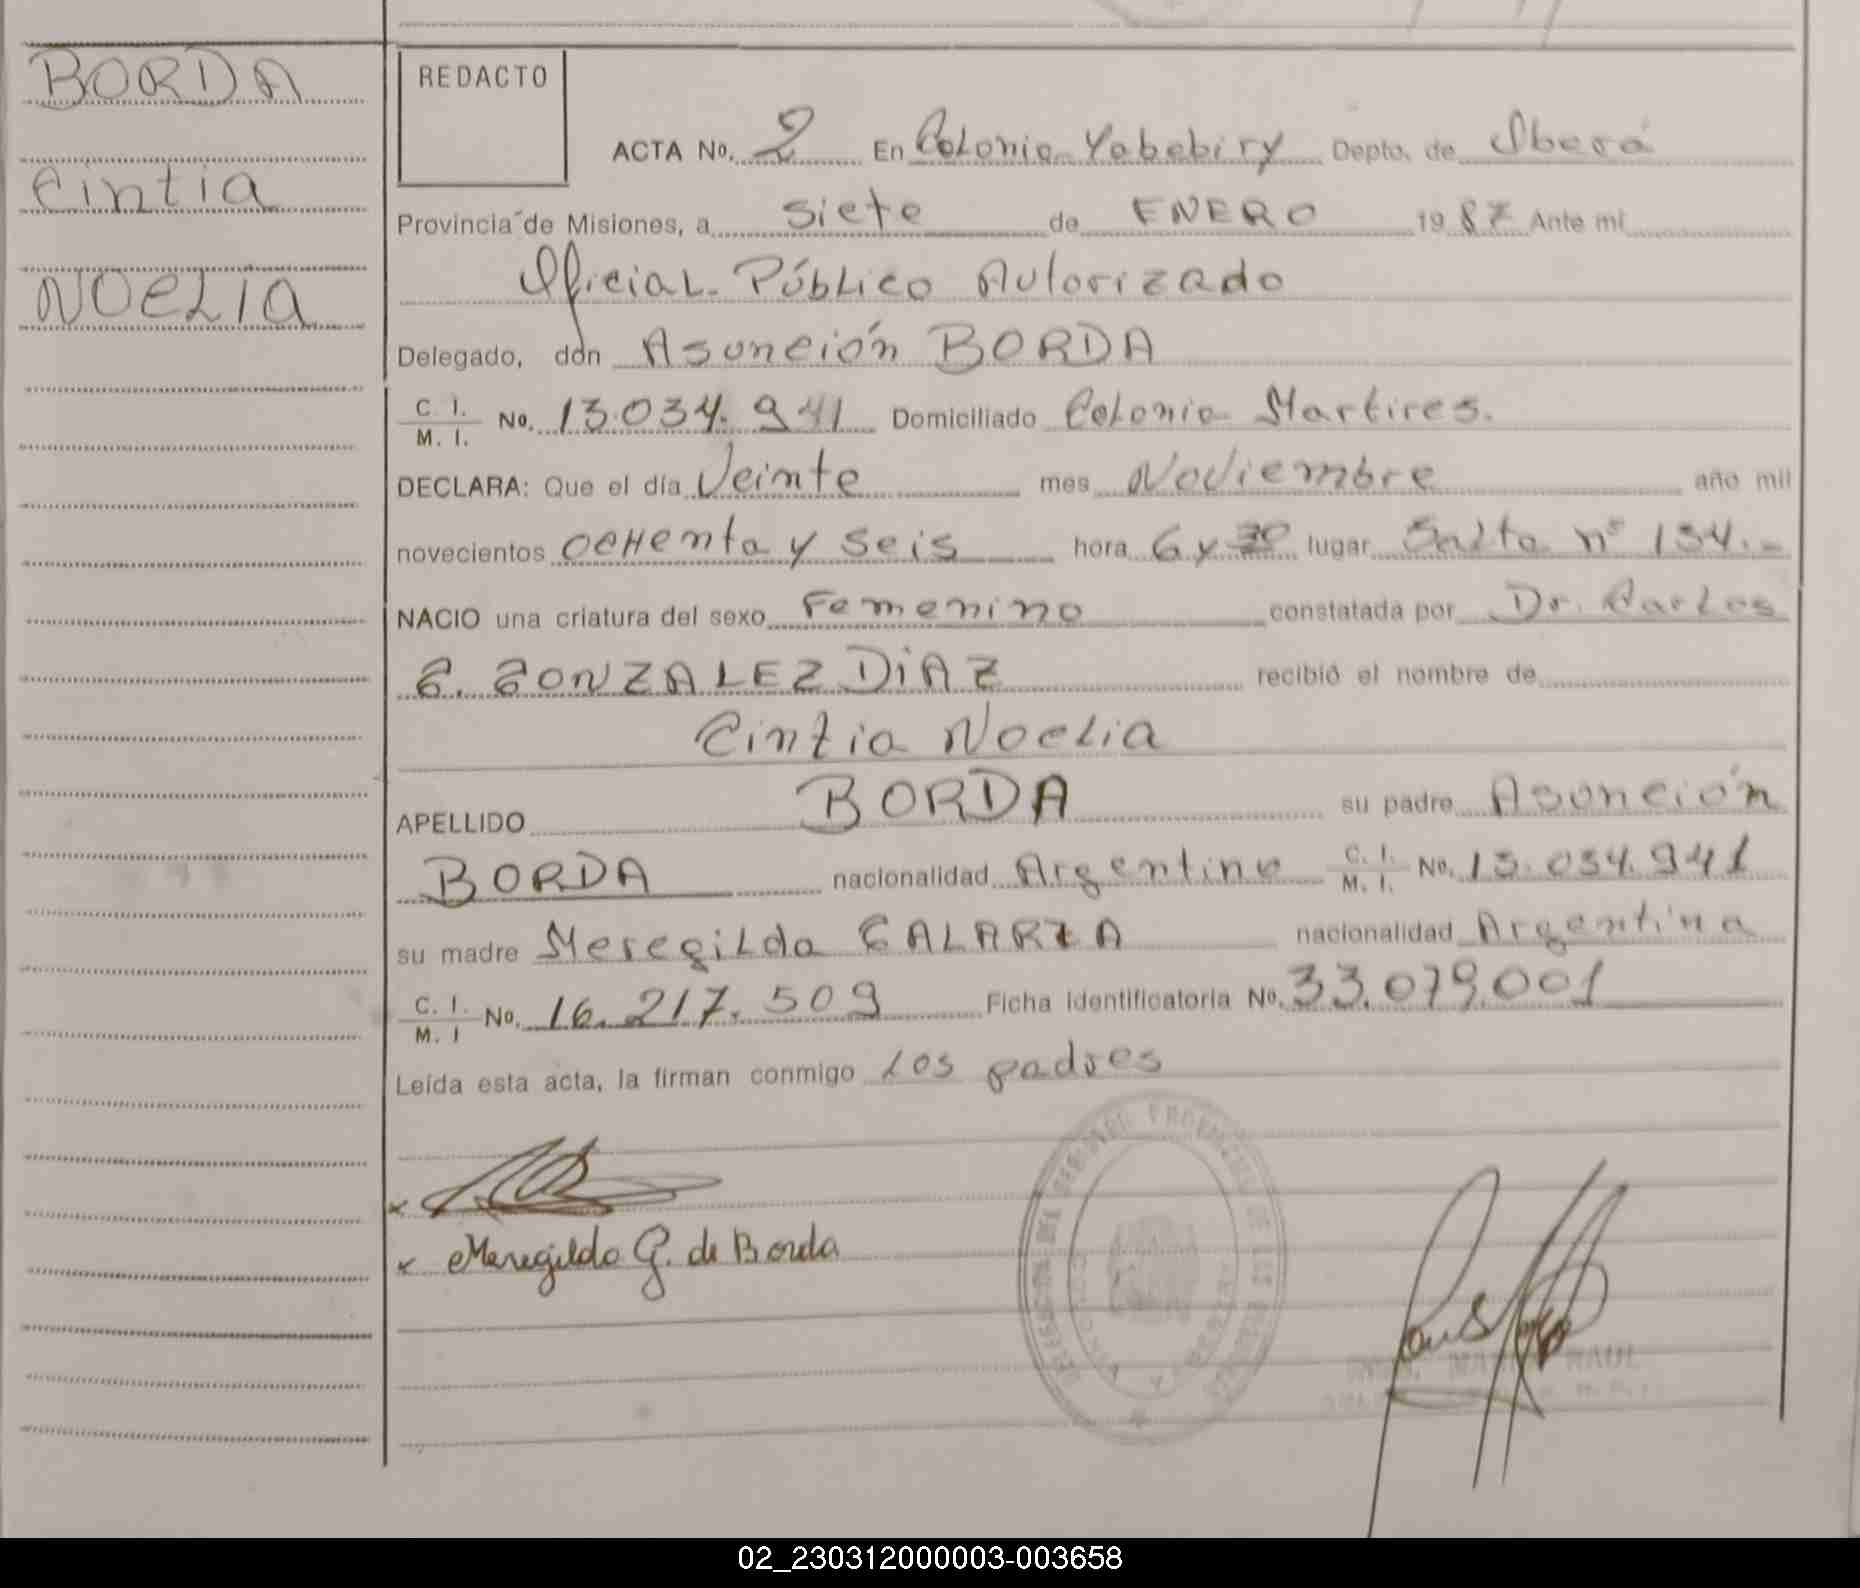 BORDA
Cintia
NOELIA
REDACTO
ACTA No. 2 En Colonia Yabebiry Depto. de Oberá
Provincia de Misiones, a siete de ENERO 19 87 Ante mí
Oficial Público Autorizado
Delegado, don Asunción BORDA
C. I. / M. I. No. 13.034.941 Domiciliado Colonia Martires.
DECLARA: Que el día Veinte mes Noviembre año mil
novecientos ocHenta y seis hora 6 y 30 lugar Salta nº 134.-
NACIO una criatura del sexo Femenino constatada por Dr. Carlos
G. GONZALEZ DIAZ recibió el nombre de
Cintia Noelia
APELLIDO BORDA su padre Asunción
BORDA nacionalidad Argentino C. I. / M. I. No. 13.034.941
su madre Meregilda GALARZA nacionalidad Argentina
C. I. / M. I No. 16.217.509 Ficha identificatoria No. 33.079.001
Leída esta acta, la firman conmigo Los padres
x
x Meregilda G. de Borda
RAUL
02_230312000003-003658